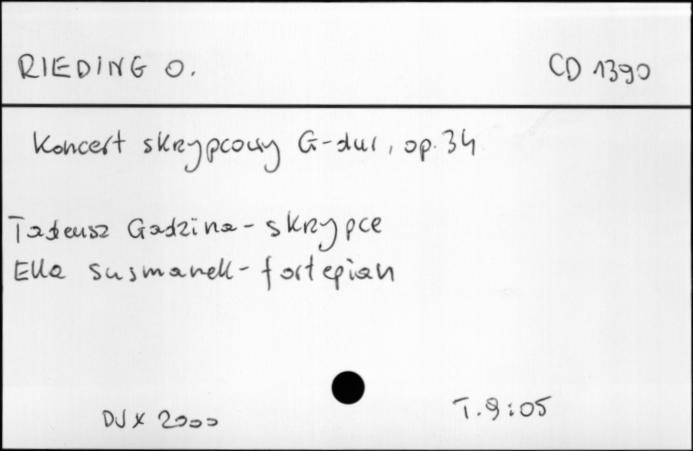 RIEDING O. CD 1390
Koncert skrzypcowy G-dur, op. 34
Tadeusz Gadzina - skrzypce
Ella Susmanek - fortepian
DUX 2000 T. 9:05